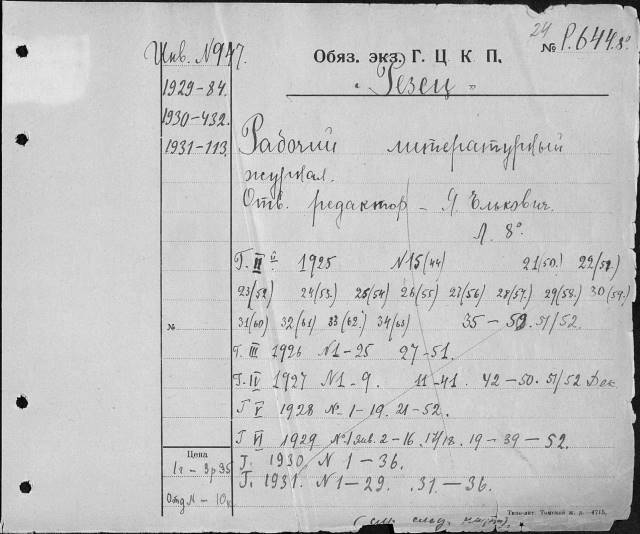 24
Инв. № 947.
Обяз. экз. Г. Ц. К. П.
№ Р.644.8°
1929-84.
„Резец"
1930-432.
1931-113.
Рабочий литературный
журнал.
Отв. редактор - Я. Элькович.
Л. 8°.
Г. II 1925 N15(44) 21(50.) 22(51.)
23(52) 24(53.) 25(54) 26(55) 27(56) 28(57.) 29(58.) 30(59.)
№ 31(60) 32(61) 33(62.) 34(63) 35-50. 51/52.
Г. III 1926 N1-25 27-51.
Г. IV 1927 N1-9. 11-41. 42-50. 51/52 Дек
Г. V 1928 N 1-19. 21-52.
Г. VI 1929 №1 Янв. 2-16. 17/18. 19-39-52.
Цена
Г. 1930. N 1-36.
1 г - 3р 95
Г. 1931. N1-29. 31-36.
Отд N - 10к
Типо-лит. Томской ж. д.-4715.
(см. след. карт).